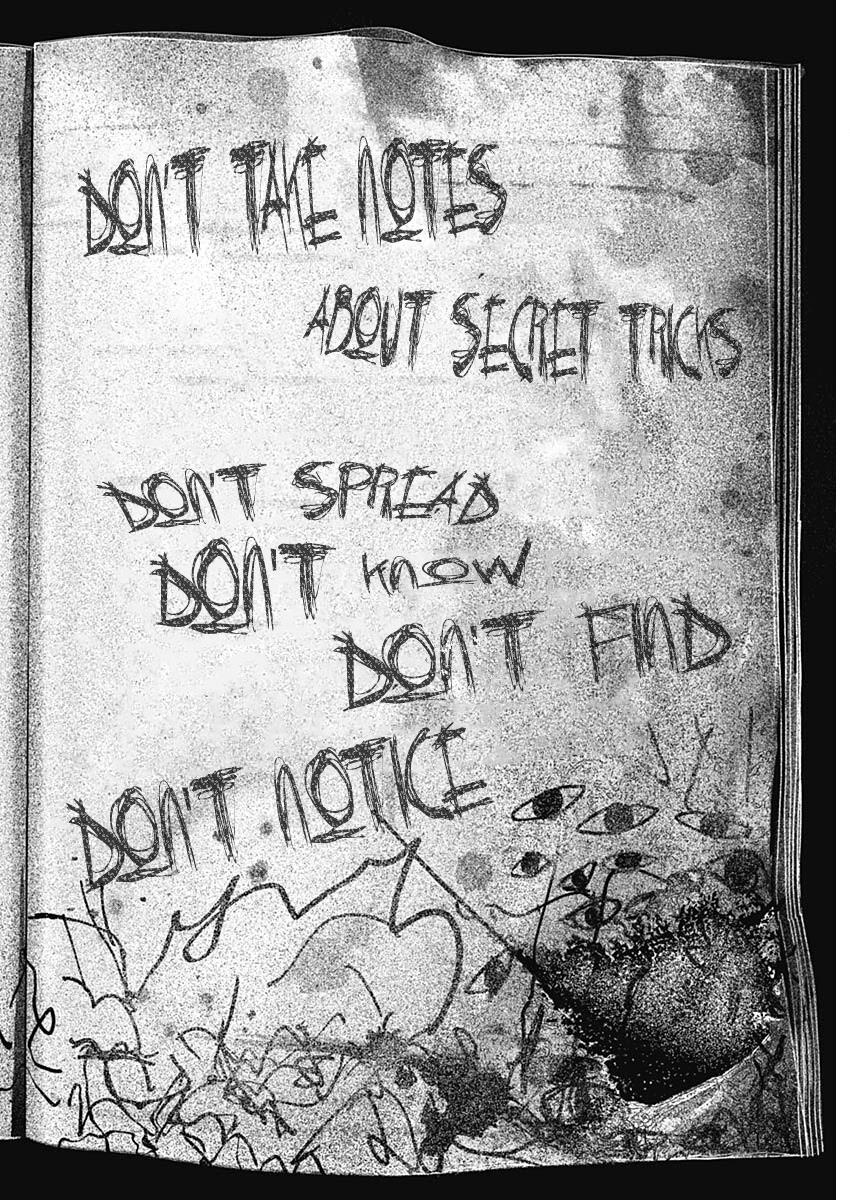 DON'T TAKE NOTES
ABOUT SECRET TRICKS
DON'T SPREAD
DON'T KNOW
DON'T FIND
DON'T NOTICE